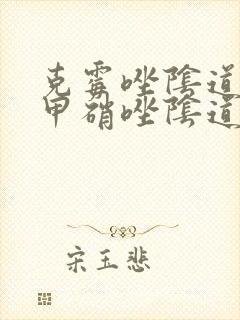 克霉唑陰道
甲硝唑陰道
宋玉悲